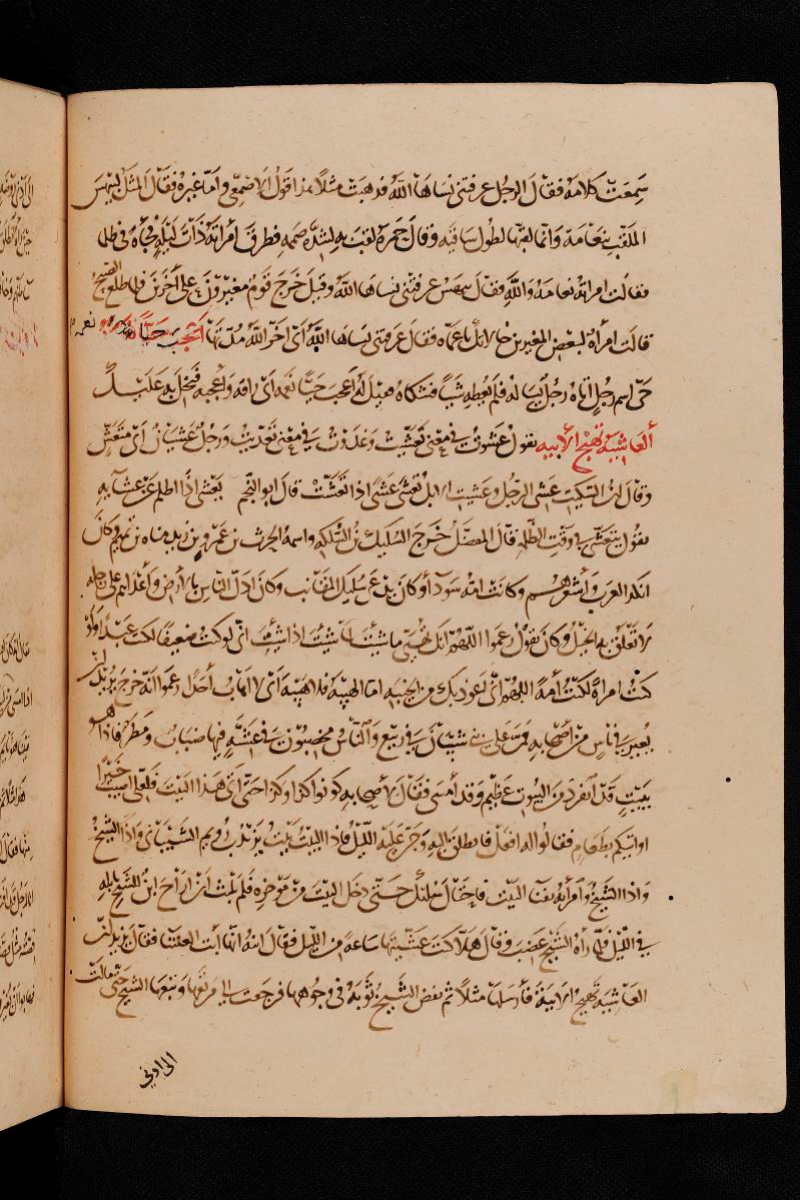 سَمِعَت كلامه فقال الرجل عرفتني نسأها الله فذهبت مثلا هذا قول الاصمعي واما غيره فقال المثل لبيهس
الملقب بنعامة وانما لقبها لطول ساقيه وقال حمزة لقب به لشدة صممه فطرق امرأته ذات ليلة فجأة في ظلمة
فقالت امرأته نعامة والله فقال بيهس عرفتني نسأها الله وقيل خرج قوم مغيرون على آخرين فلما طلع الصبح
قالت امرأة لبعض المغيرين خالاتك يا عماه فقال عرفتني نسأها الله اي اخر الله مدتها اعجب حيا نعمه
حي اسم رجل اتاه رجل يسأله فلم يعطه شيأ فشكاه فقيل له اعجب حيا نعمه اي راقه واعجبه فبخل به عليك
العاشية تهيج الآبية يقول عشوت في معنى تعشيت وغدوت في معنى تغديت ورجل عشيان اي متعش
وقال ابن السكيت عشي الرجل وعشيت الابل تعشى عشى اذا تعشت قال ابو النجم تعشى اذا اظلم عن عشائه
يقول يتعشى في وقت الظلمة قال المفضل خرج السليك بن السلكة واسمه الحرث بن عمرو بن زيد مناة بن تميم وكان
انكر العرب وأشعرهم وكانت امه سوداء وكان يدعى سليك المقانب وكان ادل الناس بالارض وأعداهم على رجله
لا تعلق به الخيل وكان يقول زعموا اللهم انك تهيئ ما شئت لما شئت اذا شئت اني لو كنت ضعيفا لكنت عبدا ولو
كنت امرأة لكنت أمة اللهم اني اعوذ بك من الخيبة اما الهيبة فلا هيبة اي لا اهاب احدا زعموا انه خرج يريد ان
يغير في ناس من اصحابه فمر على بني شيبان في ربيع والناس مخصبون في عشية فيها ضباب ومطر فاذا هو
ببيت قد انفرد من البيوت عظيم وقد أمسى فقال لاصحابه كونوا كذا وكذا حتى آتي هذا البيت فلعلي اصيب خيرا
او آتيكم بطعام فقالوا له افعل فانطلق اليه وجن عليه الليل فاذا البيت بيت يزيد بن رويم الشيباني واذا الشيخ
واذا الشيخ وامرأته بفنا البيت فاحتال سليك حتى دخل البيت من مؤخره فلم يلبث ان اراح ابن الشيخ بابله
في الليل فلما رآه الشيخ غضب وقال هلا كنت عشيتها ساعة من الليل فقال ابنه انها ابت العشا فقال يزيد ان
العاشية تهيج الآبية فأرسلها مثلا ثم نفض الشيخ ثوبه في وجوهها فرجعت الى مرتعها وتبعها الشيخ حتى مالت
الى ادنى